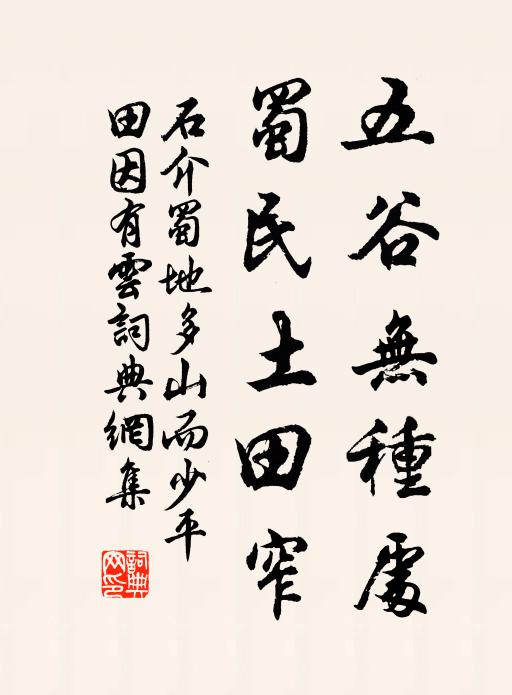 五谷無種處
蜀民土田窄
石介蜀地多山而少平
田因有雲詞典網集
詞典
网印